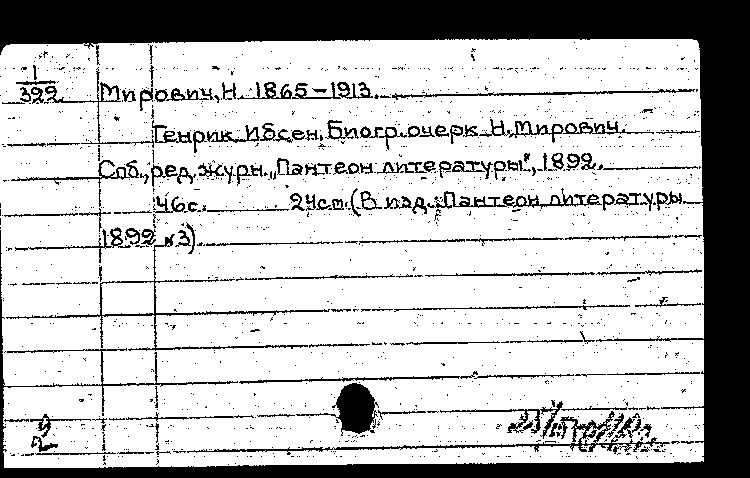 1
399
Мирович, Н. 1865-1913.
Генрик Ибсен. Биогр. очерк Н. Мирович.
Спб., ред. журн. „Пантеон литературы“, 1892.
46с. 24см. (В изд.: Пантеон литературы
1892 №3).